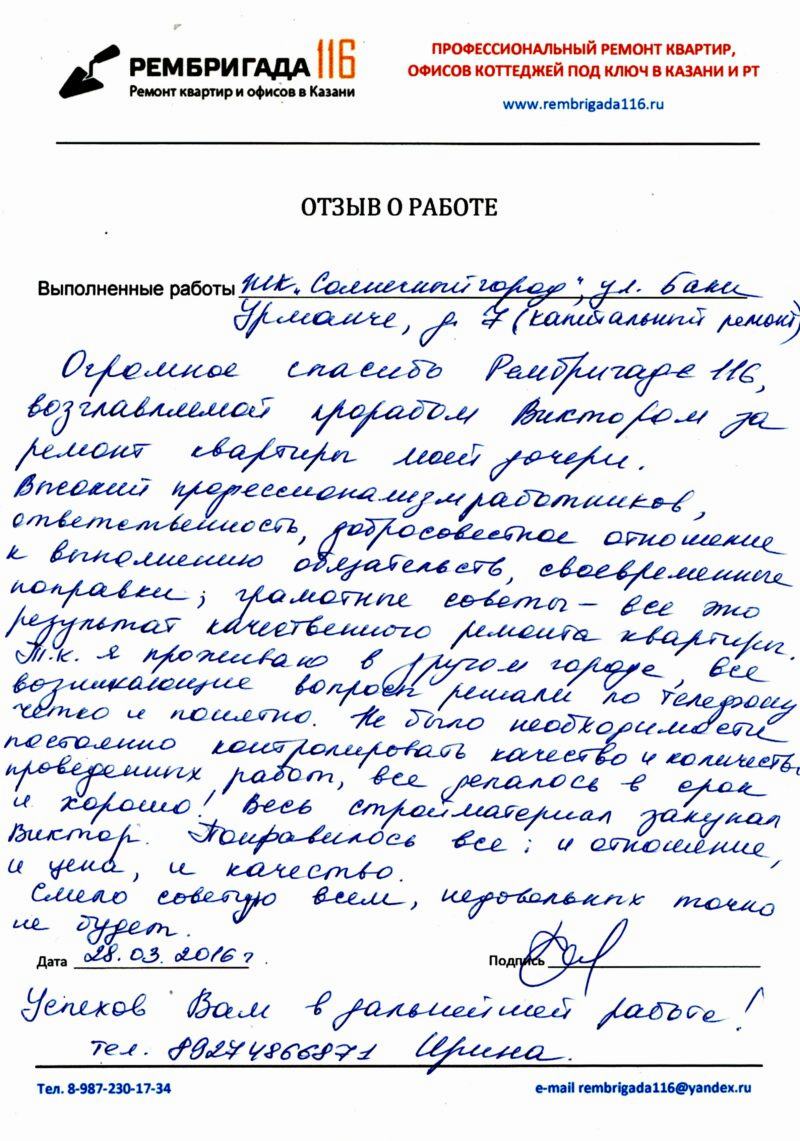 РЕМБРИГАДА 116
Ремонт квартир и офисов в Казани
ПРОФЕССИОНАЛЬНЫЙ РЕМОНТ КВАРТИР,
ОФИСОВ КОТТЕДЖЕЙ ПОД КЛЮЧ В КАЗАНИ И РТ
www.rembrigada116.ru
ОТЗЫВ О РАБОТЕ
Выполненные работы ЖК „Солнечный город", ул. Баки
Урманче, д. 7 (капитальный ремонт)
Огромное спасибо Рембригаде 116,
возглавляемой прорабом Виктором за
ремонт квартиры моей дочери.
Высокий профессионализм работников,
ответственность, добросовестное отношение
к выполнению обязательств, своевременные
поправки; грамотные советы – все это
результат качественного ремонта квартиры.
Т.к. я проживаю в другом городе, все
возникающие вопросы решали по телефону
четко и понятно. Не было необходимости
постоянно контролировать качество и количество
проведенных работ, все делалось в срок
и хорошо! Весь стройматериал закупал
Виктор. Понравилось все: и отношение,
и цена, и качество.
Смело советую всем, недовольных точно
не будет.
Дата 28.03.2016 г.
Подпись
Успехов Вам в дальнейшей работе!
тел. 89274866871 Ирина.
Тел. 8-987-230-17-34
e-mail rembrigada116@yandex.ru